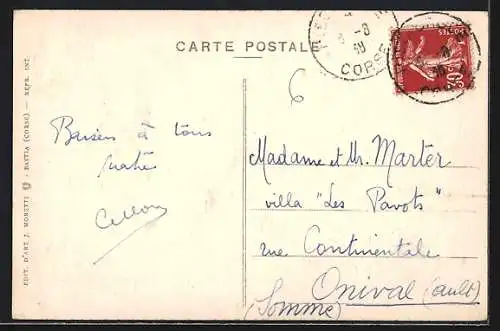 CARTE POSTALE
CORSE
POSTES
EDIT. D'ART J. MORETTI - BASTIA (CORSE) — REPR. INT.
Baisers à tous
6
Madame et Mr. Marter
villa "Les Pavots"
rue Continentale
Onival (ault)
(Somme)